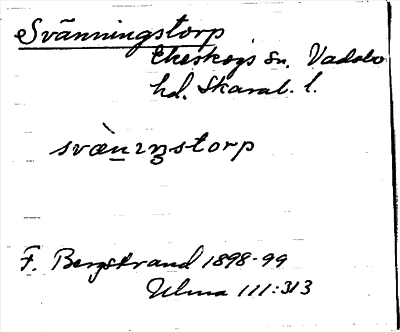 Svänningstorp
Ekeskogs sn. Vadsbo
hd. Skarab. l.
svæ̀nıŋstorp
F. Bergstrand 1898-99
Ulma 111:313